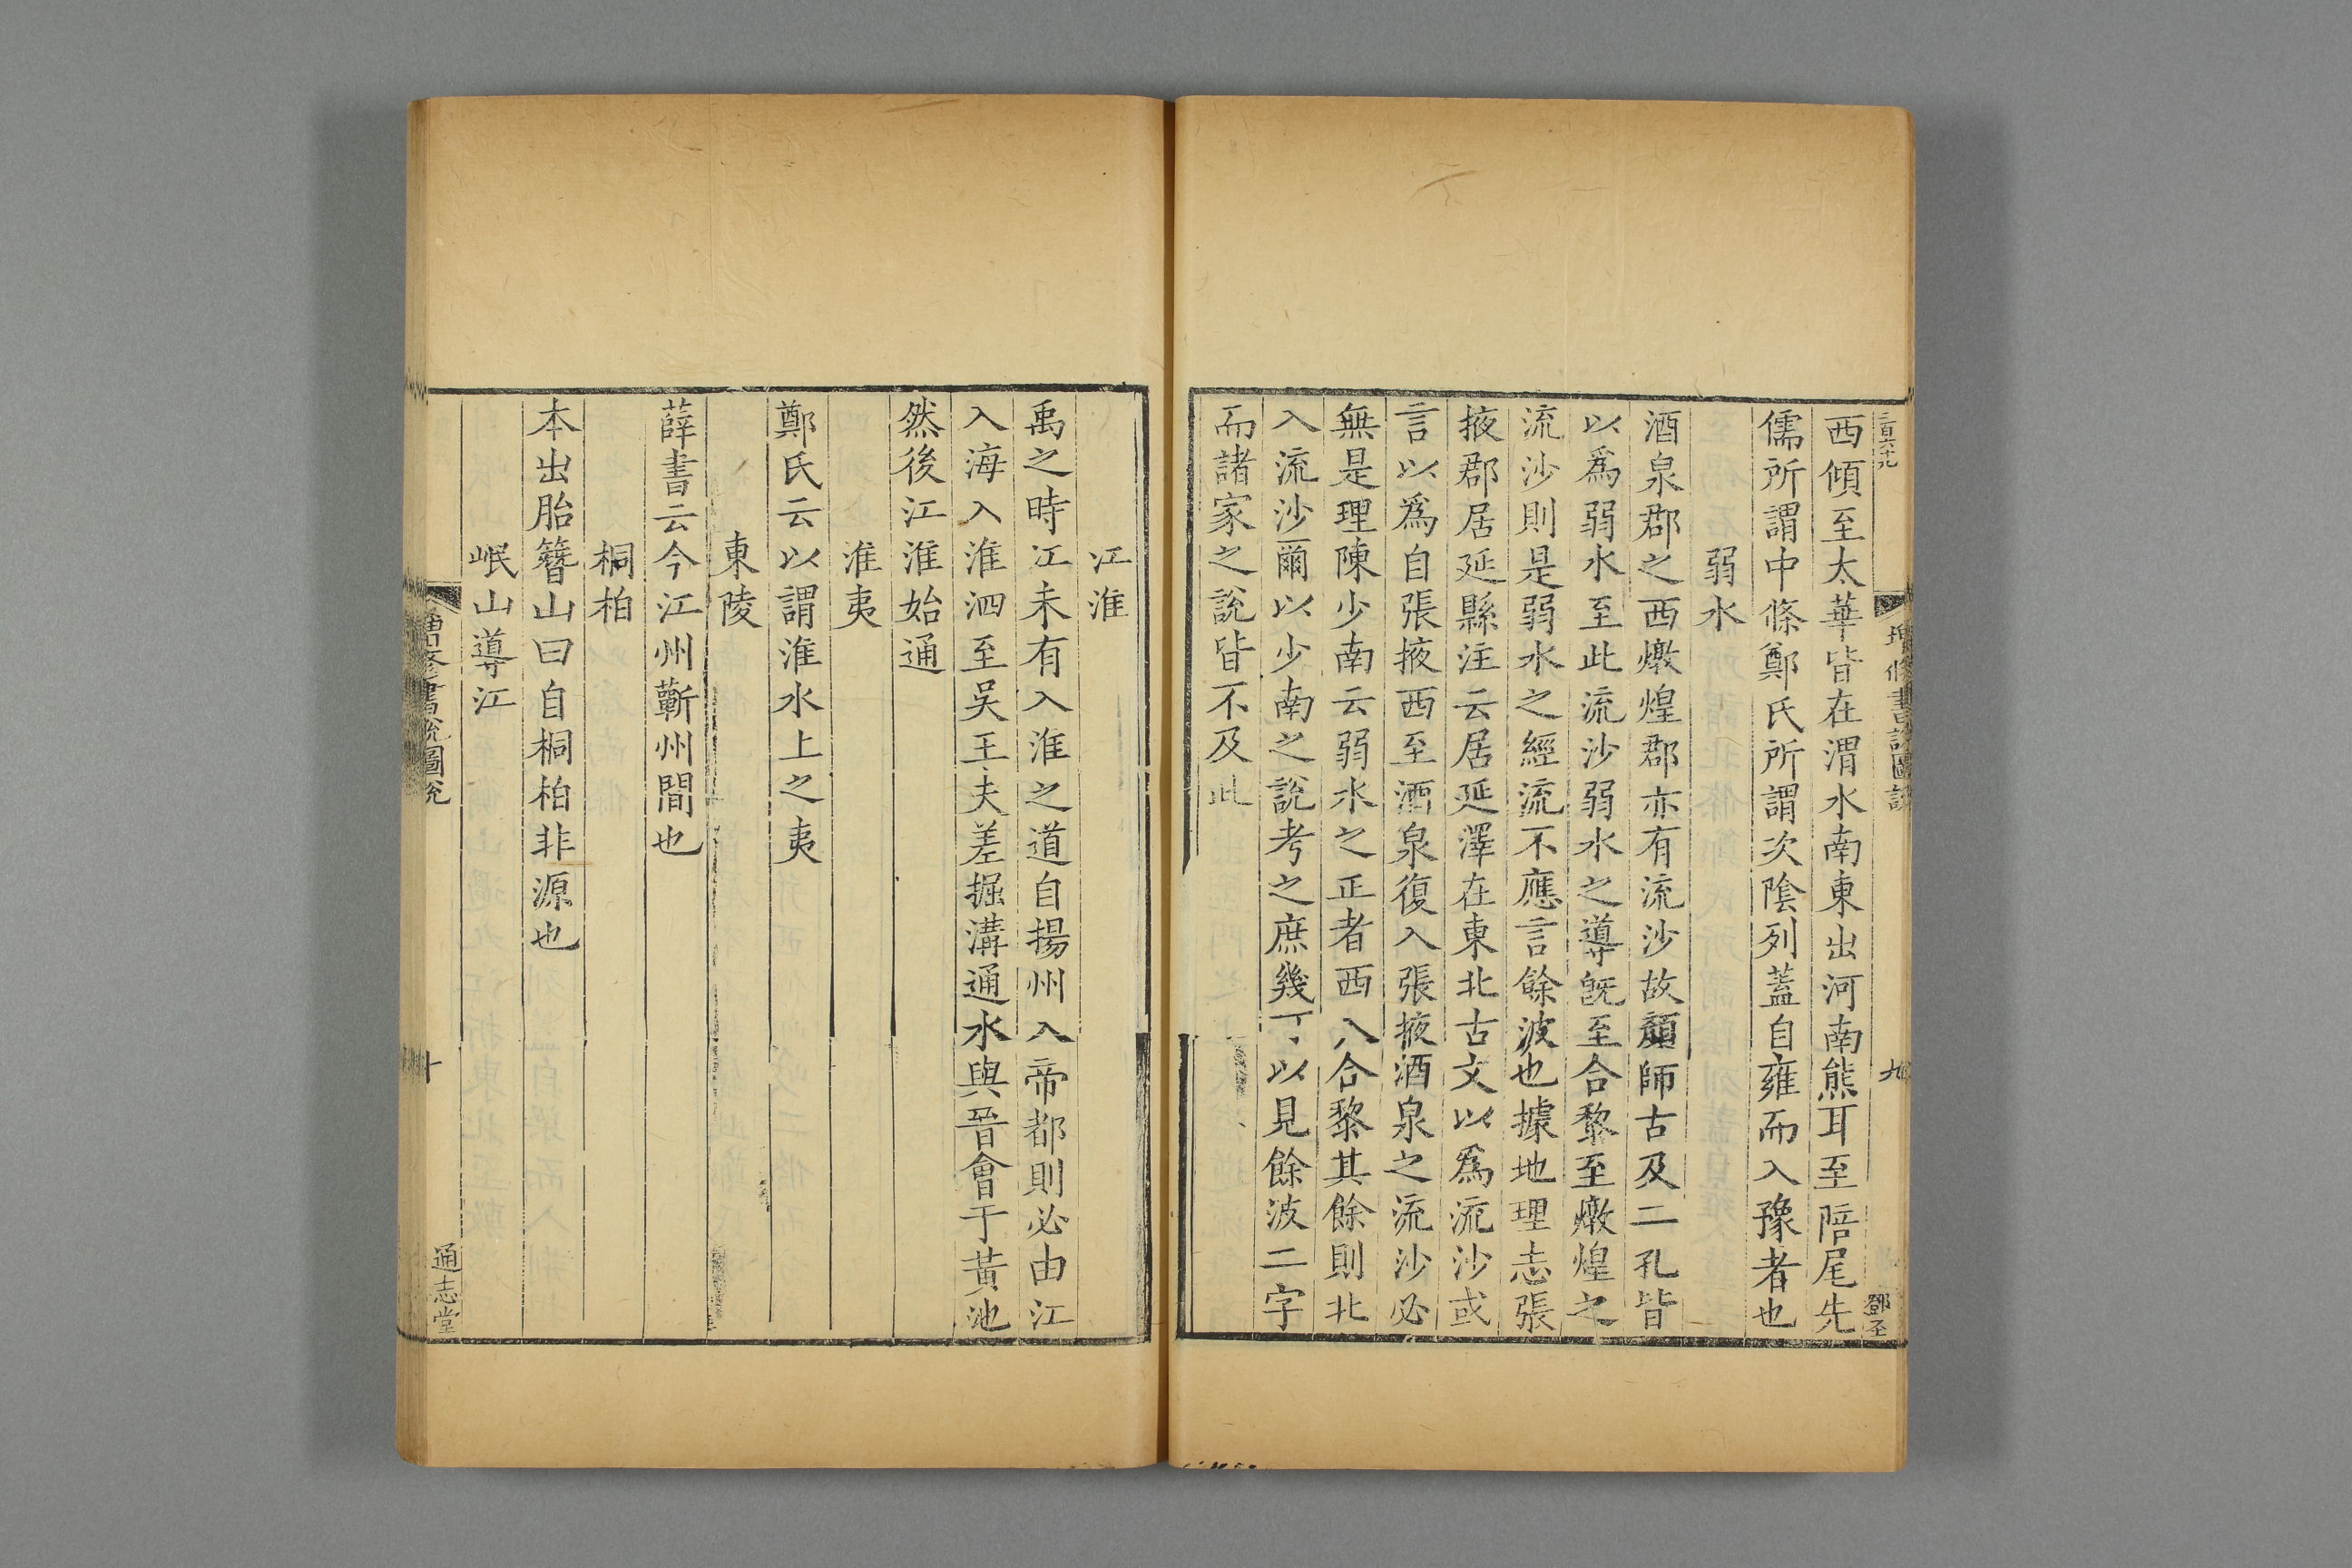 增修書說圖說
九
鄧玉
西傾至太華皆在渭水南東出河南熊耳至陪尾先
儒所謂中條鄭氏所謂次陰列蓋自雍而入豫者也
弱水
酒泉郡之西燉煌郡亦有流沙故顏師古及二孔皆
以爲弱水至此流沙弱水之導旣至合黎至燉煌之
流沙則是弱水之經流不應言餘波也據地理志張
掖郡居延縣注云居延澤在東北古文以爲流沙或
言以爲自張掖西至酒泉復入張掖酒泉之流沙必
無是理陳少南云弱水之正者西入合黎其餘則北
入流沙爾以少南之說考之庶幾可以見餘波二字
而諸家之說皆不及此
江淮
禹之時江未有入淮之道自揚州入帝都則必由江
入海入淮泗至吳王夫差掘溝通水與晉會于黃池
然後江淮始通
淮夷
鄭氏云以謂淮水上之夷
東陵
薛書云今江州蘄州間也
桐柏
本出胎簪山曰自桐柏非源也
岷山導江
增修書說圖說
十
通志堂